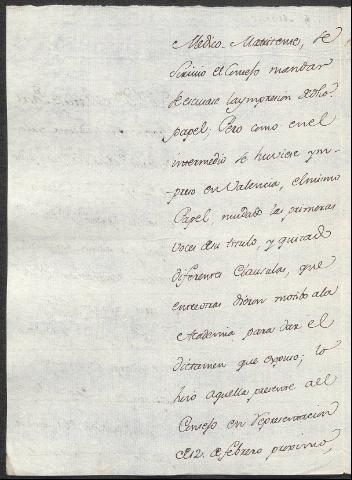 Medico-Matritense, se
sirvio el Consejo mandar
se escusase la ympresion de dho.
papel; Pero como en el
intermedio se huviese ym-
preso en Valencia, el mismo
Papel, mudado las primeras
voces de su titulo, y quitado
diferentes Clausulas, que
entre otras dieron motibo a la
Academia para dar el
dictamen que expuso; lo
hizo aquella presente al
Consejo en representacion
de 12. de febrero proximo,